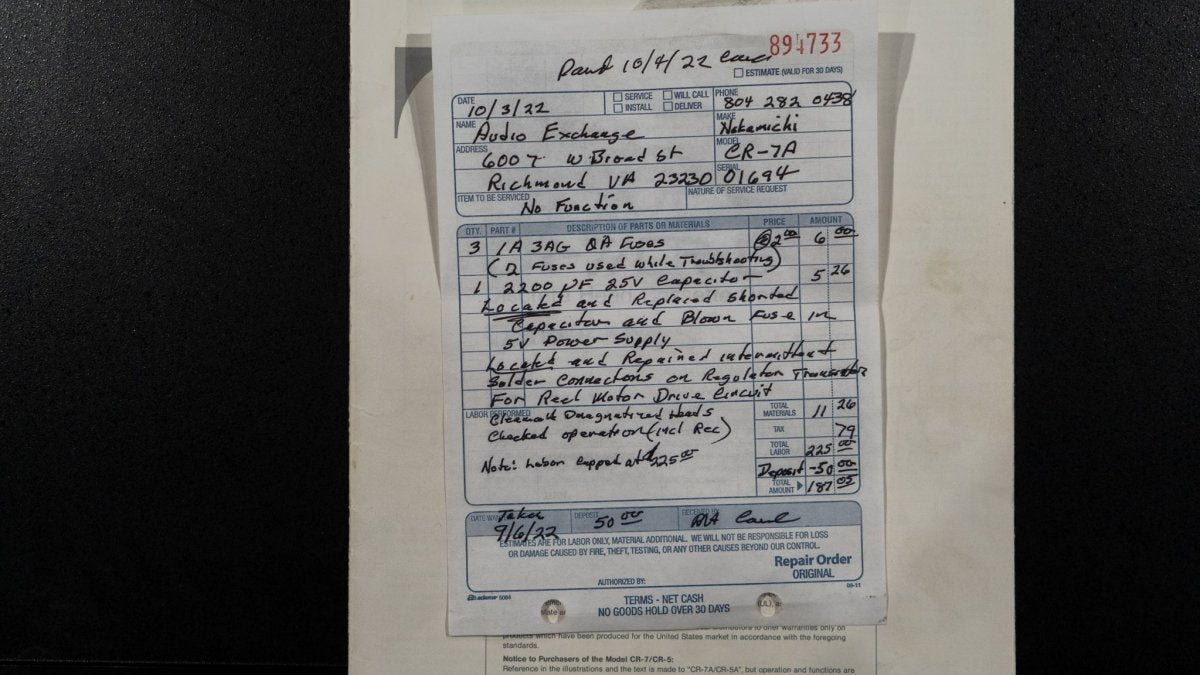 894733
Paid 10/4/22 Card
ESTIMATE (VALID FOR 30 DAYS)
DATE 10/3/22
SERVICE WILL CALL
INSTALL DELIVER
PHONE 804 282 0438
NAME Audio Exchange
MAKE Nakamichi
ADDRESS 6007 W Broad St
MODEL CR-7A
Richmond VA 23230
SERIAL 01694
ITEM TO BE SERVICED No Function
NATURE OF SERVICE REQUEST
QTY. PART # DESCRIPTION OF PARTS OR MATERIALS PRICE AMOUNT
3 1A 3AG QA Fuses @ 2 00 6 00
(2 Fuses used while Troubleshooting)
1 2200 µF 25V Capacitor 5 26
Located and Replaced Shorted
Capacitor and Blown Fuse in
5V Power Supply
Located and Repaired intermittent
Solder Connections on Regulator Transistor
For Reel Motor Drive Circuit
LABOR PERFORMED
Demagnetized Heads
Checked operation (incl Rec)
Note: Labor capped at $225 00
TOTAL MATERIALS 11 26
TAX 79
TOTAL LABOR 225 00
Deposit -50 00
TOTAL AMOUNT 187 05
Taken 9/6/22
DEPOSIT 50 00
RECEIVED BY
ESTIMATES ARE FOR LABOR ONLY, MATERIAL ADDITIONAL. WE WILL NOT BE RESPONSIBLE FOR LOSS
OR DAMAGE CAUSED BY FIRE, THEFT, TESTING, OR ANY OTHER CAUSES BEYOND OUR CONTROL.
Repair Order
ORIGINAL
AUTHORIZED BY:
09-11
adams 5084
TERMS - NET CASH
NO GOODS HOLD OVER 30 DAYS
products which have been produced for the United States market in accordance with the foregoing
standards.
Notice to Purchasers of the Model CR-7/CR-5:
Reference in the illustrations and the text is made to "CR-7A/CR-5A", but operation and functions are